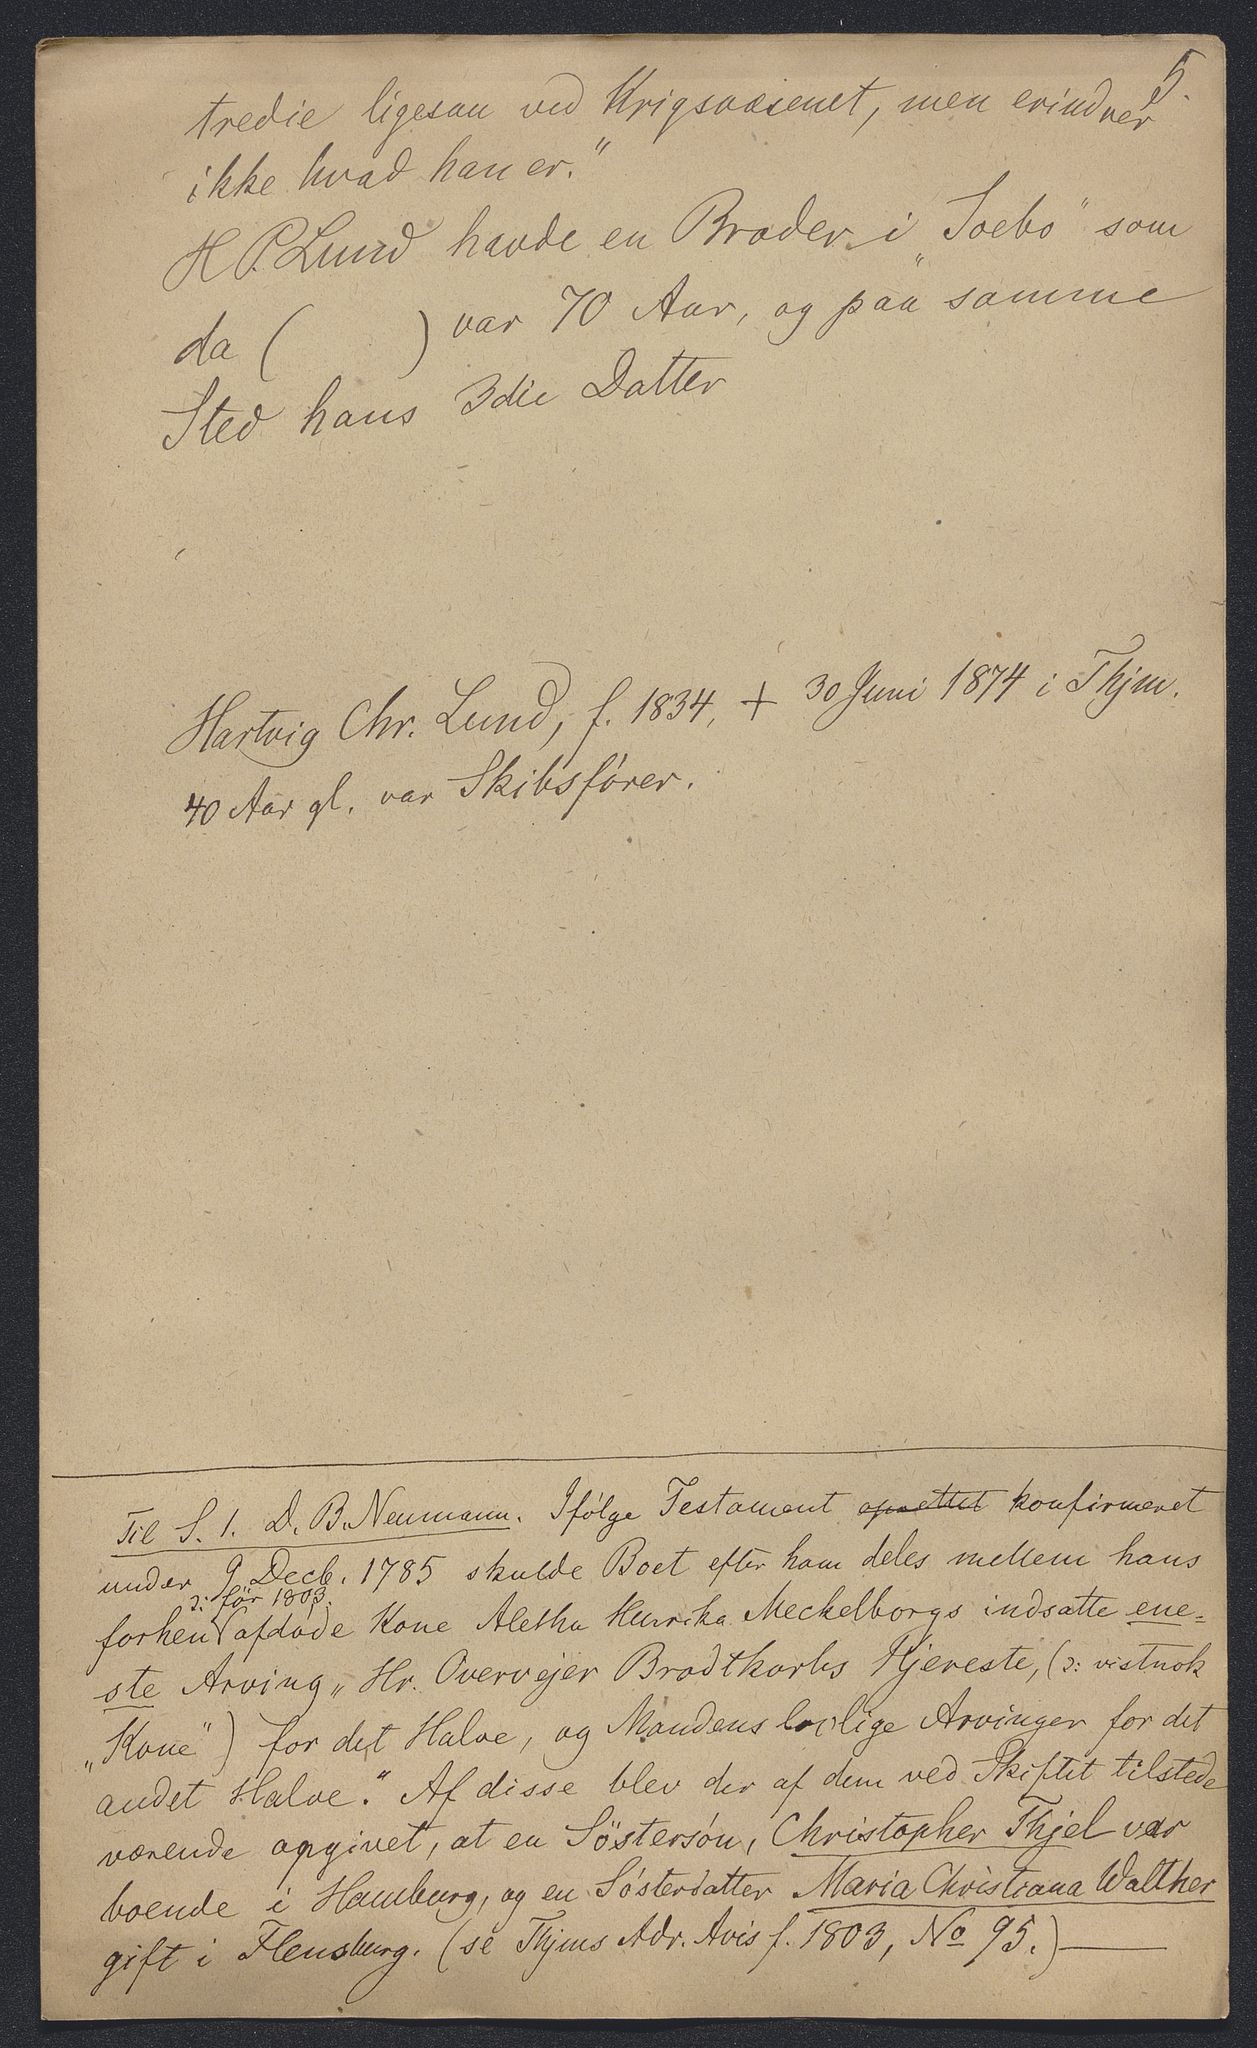 5.
tredie ligesaa ved Krigsvæsenet, men erindrer
ikke hvad han er."
H P. Lund havde en Broder i „Soebo" som
da ( ) var 70 Aar, og paa samme
Sted hans 3die Datter
Hartvig Chr. Lund, f. 1834, + 30 Juni 1874 i Thjm.
40 Aar gl. var Skibsfører.
Til S. 1. D. B. Neumann. Ifølge Testament oprettet konfirmeret
under 9 Decb. 1785 skulde Boet efter ham deles mellem hans
ɔ: før 1803.
forhen afdøde Kone Aletha Henrika Meckelborgs indsatte ene=
ste Arving „Hr. Overvejer Brodtkorbs Kjereste, (ɔ: vistnok
„Kone") for det Halve, og Mandens lovlige Arvinger for det
andet Halve." Af disse blev der af dem ved Skiftet tilstede
værende opgivet, at en Söstersön, Christopher Thjel var
boende i Hamburg, og en Sösterdatter Maria Christiana Walther
gift i Flensburg. (se Thjms Adr. Avis f. 1803, No 95.)